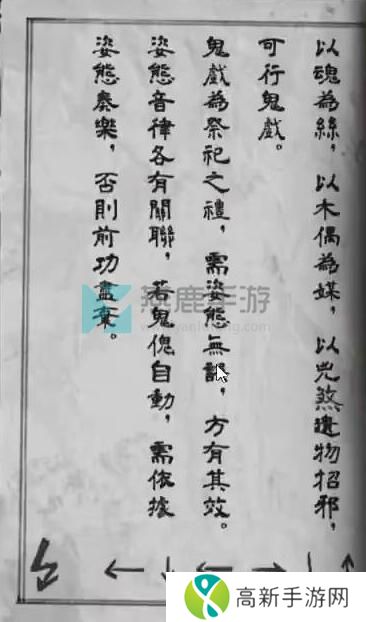 以魂為絲，以木偶為媒，以兇煞遺物招邪，
可行鬼戲。
鬼戲為祭祀之禮，需姿態無誤，方有其效。
姿態音律各有關聯，若鬼傀自動，需依據
姿態奏樂，否則前功盡棄。
燕鹿手游
高新手游网